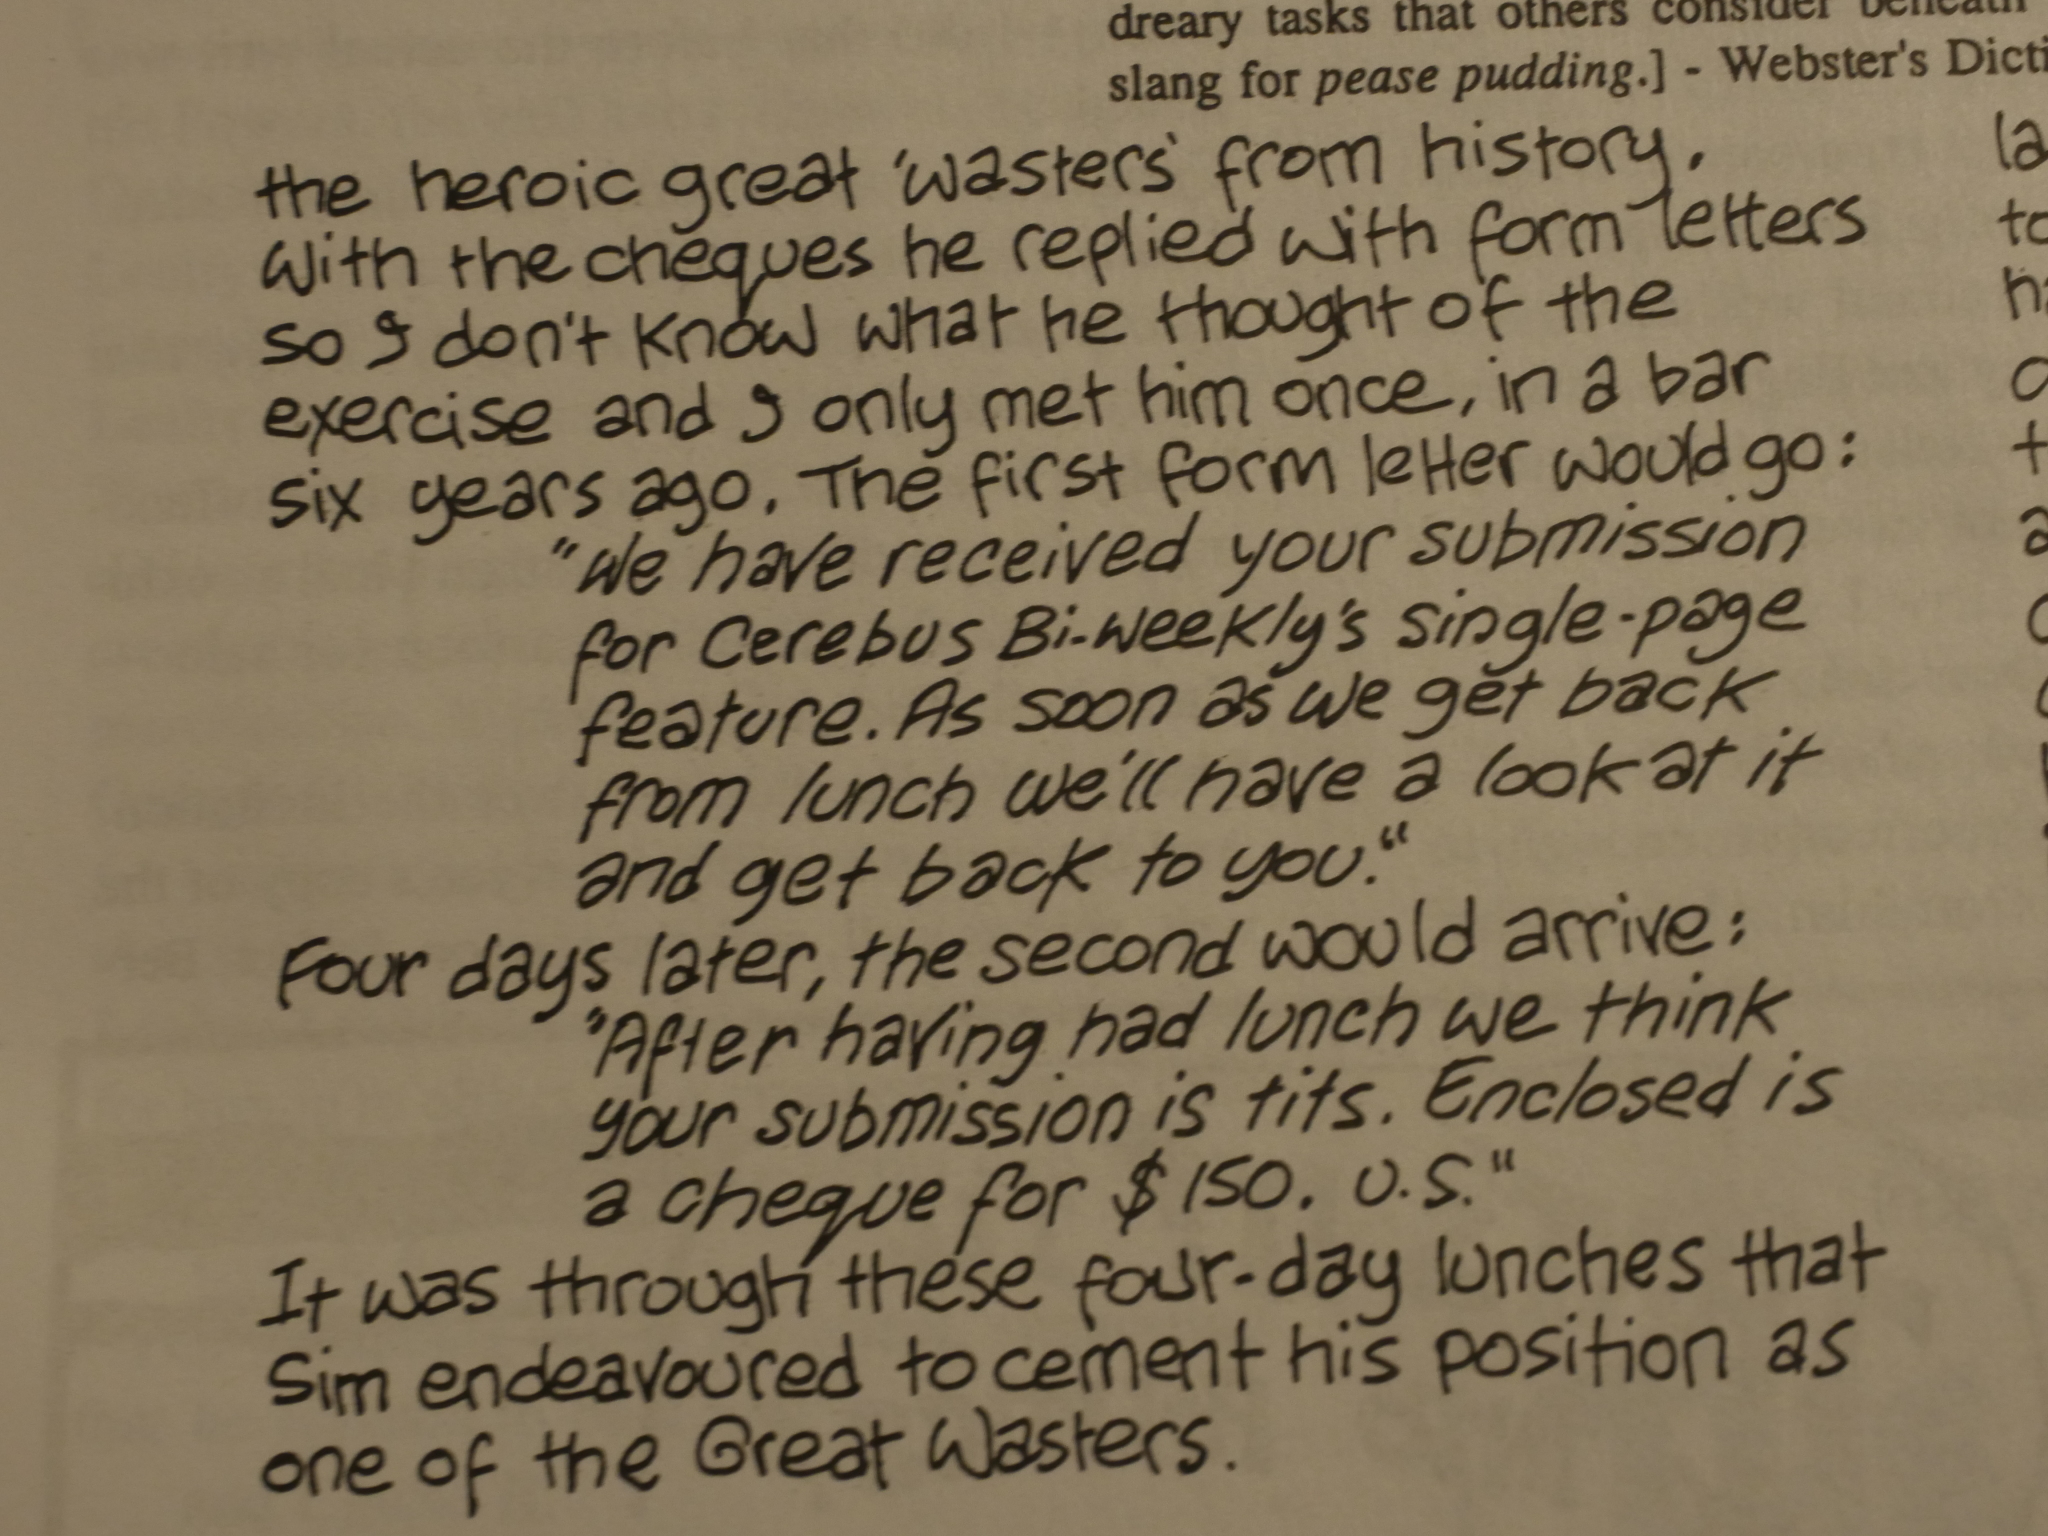 dreary tasks that others consider beneath
slang for pease pudding.] - Webster's Dicti
the heroic great 'wasters' from history.
With the cheques he replied with form letters
so I don't know what he thought of the
exercise and I only met him once, in a bar
six years ago. The first form letter would go:
"We have received your submission
for Cerebus Bi-weekly's single-page
feature. As soon as we get back
from lunch we'll have a look at it
and get back to you."
Four days later, the second would arrive:
"After having had lunch we think
your submission is tits. Enclosed is
a cheque for $150. U.S."
It was through these four-day lunches that
Sim endeavoured to cement his position as
one of the Great Wasters.